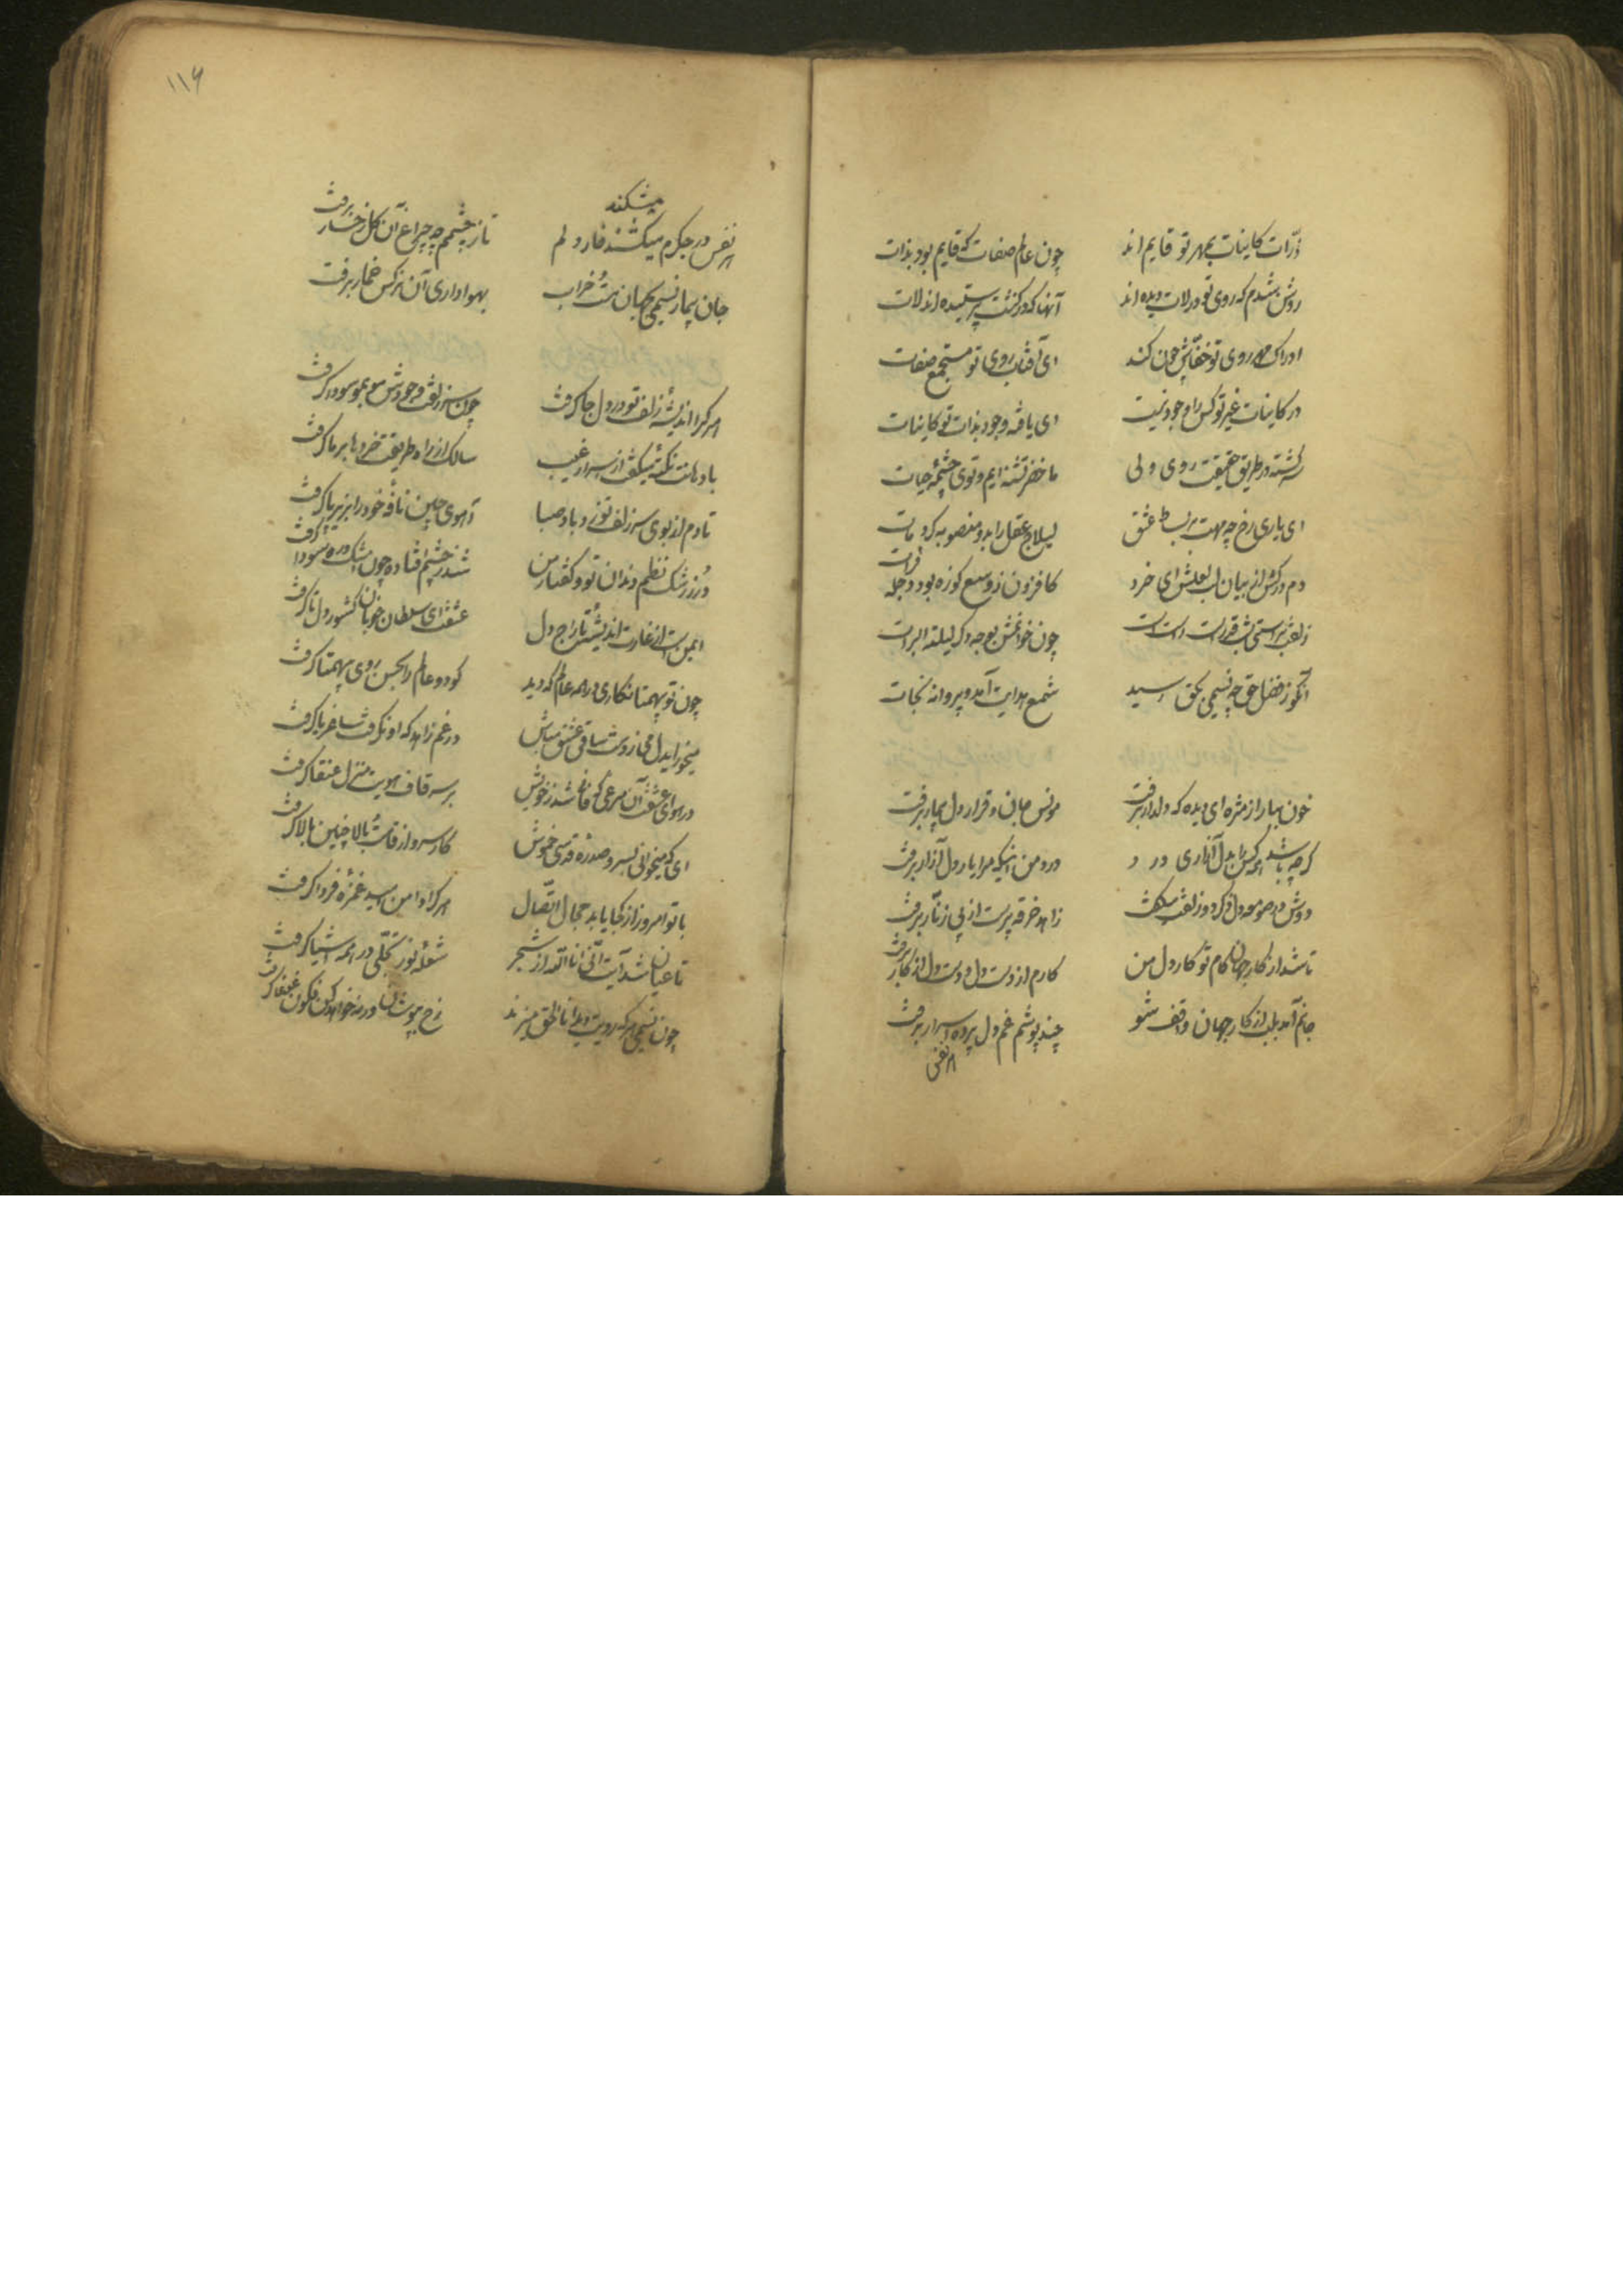 ذرات کاینات بمهر تو قایم‌اند چون عالم صفات که قایم بود بذات
روشن بشد که روی تو در لات دیده‌اند آنها که در کنشت پرستیده‌اند لات
ادراک مهر روی تو خفاش چون کند ای آفتاب روی تو مستجمع صفات
در کاینات غیر تو کس را وجود نیست ای یافته وجود بذات تو کاینات
سرگشته در طریق حقیقت روی ولی ما خضر تشنه ایم و توی چشمه حیات
ای یاری رخ چه مهت بر بساط عشق لیلاج عقل را بدو منصوبه کرد مات
دم درکش از بیان لب لعلش ای خرد کافزون ز وسع کوزه بود دجله
فرات
زلفت براستی شب قدرست چون خوانمش بوجه دگر لیلة البرات
آنکو ز فضل حق چه نسیمی بحق رسید شمع هدایت آمد و پروانه نجات
خون ببار از مژه ای دیده که دلدار برفت مونس جان و قرار دل بیمار برفت
گرچه باشد همه کس را بدل آزاری درد درد من اینکه مرا یار دل آزار برفت
دوش در صومعه دل ذکر دو زلفت میگفت زاهد خرقه پرست از پی زنار برفت
تا شد از کار جهان کام تو کار دل من کارم از دست دل و دست دل از کار برفت
جانم آمد بلب از کار جهان واقف شو چند پوشم غم دل پرده اسرار برفت
هر نفس
۱۱۶
میشکند
هر نفس در جگرم میکشند خار دلم تا ز چشمم چه چراغ آن گل رخسار برفت
جان بیمار نسیمی بجهان مست خراب بهواداری آن نرگس خمار برفت
هر کرا اندیشه زلف تو در دل جا گرفت چون سر زلفت وجودش مو بمو سودا گرفت
با دهانت نکته میگفت از سر غیب سالک از راه طریقت خردها بر ما گرفت
تا دم از بوی سر زلف تو زد باد صبا آهوی چین نافه خود را بزیر پا گرفت
در ز رشک نظم دندان تو و گفتار من شد ز چشم افتاده چون اشک
ایمن است از غارت اندیشه تاراج دل عشقت ای سلطان خوبان کشور دل تا گرفت
چون تو بیهمتا نگاری در همه عالم که دید کو دو عالم را بحسن روی بیهمتا گرفت
میخور ایدل می ز دست ساقی عشق مباش در غم زاهد که او نگرفت ساغر یا گرفت
در هوای عشقت آن مرغی که فانی شد ز خویش بر سر قاف هویت منزل عنقا گرفت
ای که میخوانی بسرو صدره قدسی خموش کار سرو از قامت بالا چنین بالا گرفت
با تو امروز از کجا یابد مجال اتصال هر کرا دامن امید غمزه فردا گرفت
تا عیان شد آیت انی انا الله از شجر شعله نور تجلی در همه اشیا گرفت
چون نسیمی هر که رویت دید انا الحق میزند رخ بپوشان ورنه خواهد کون فکون غوغا گرفت